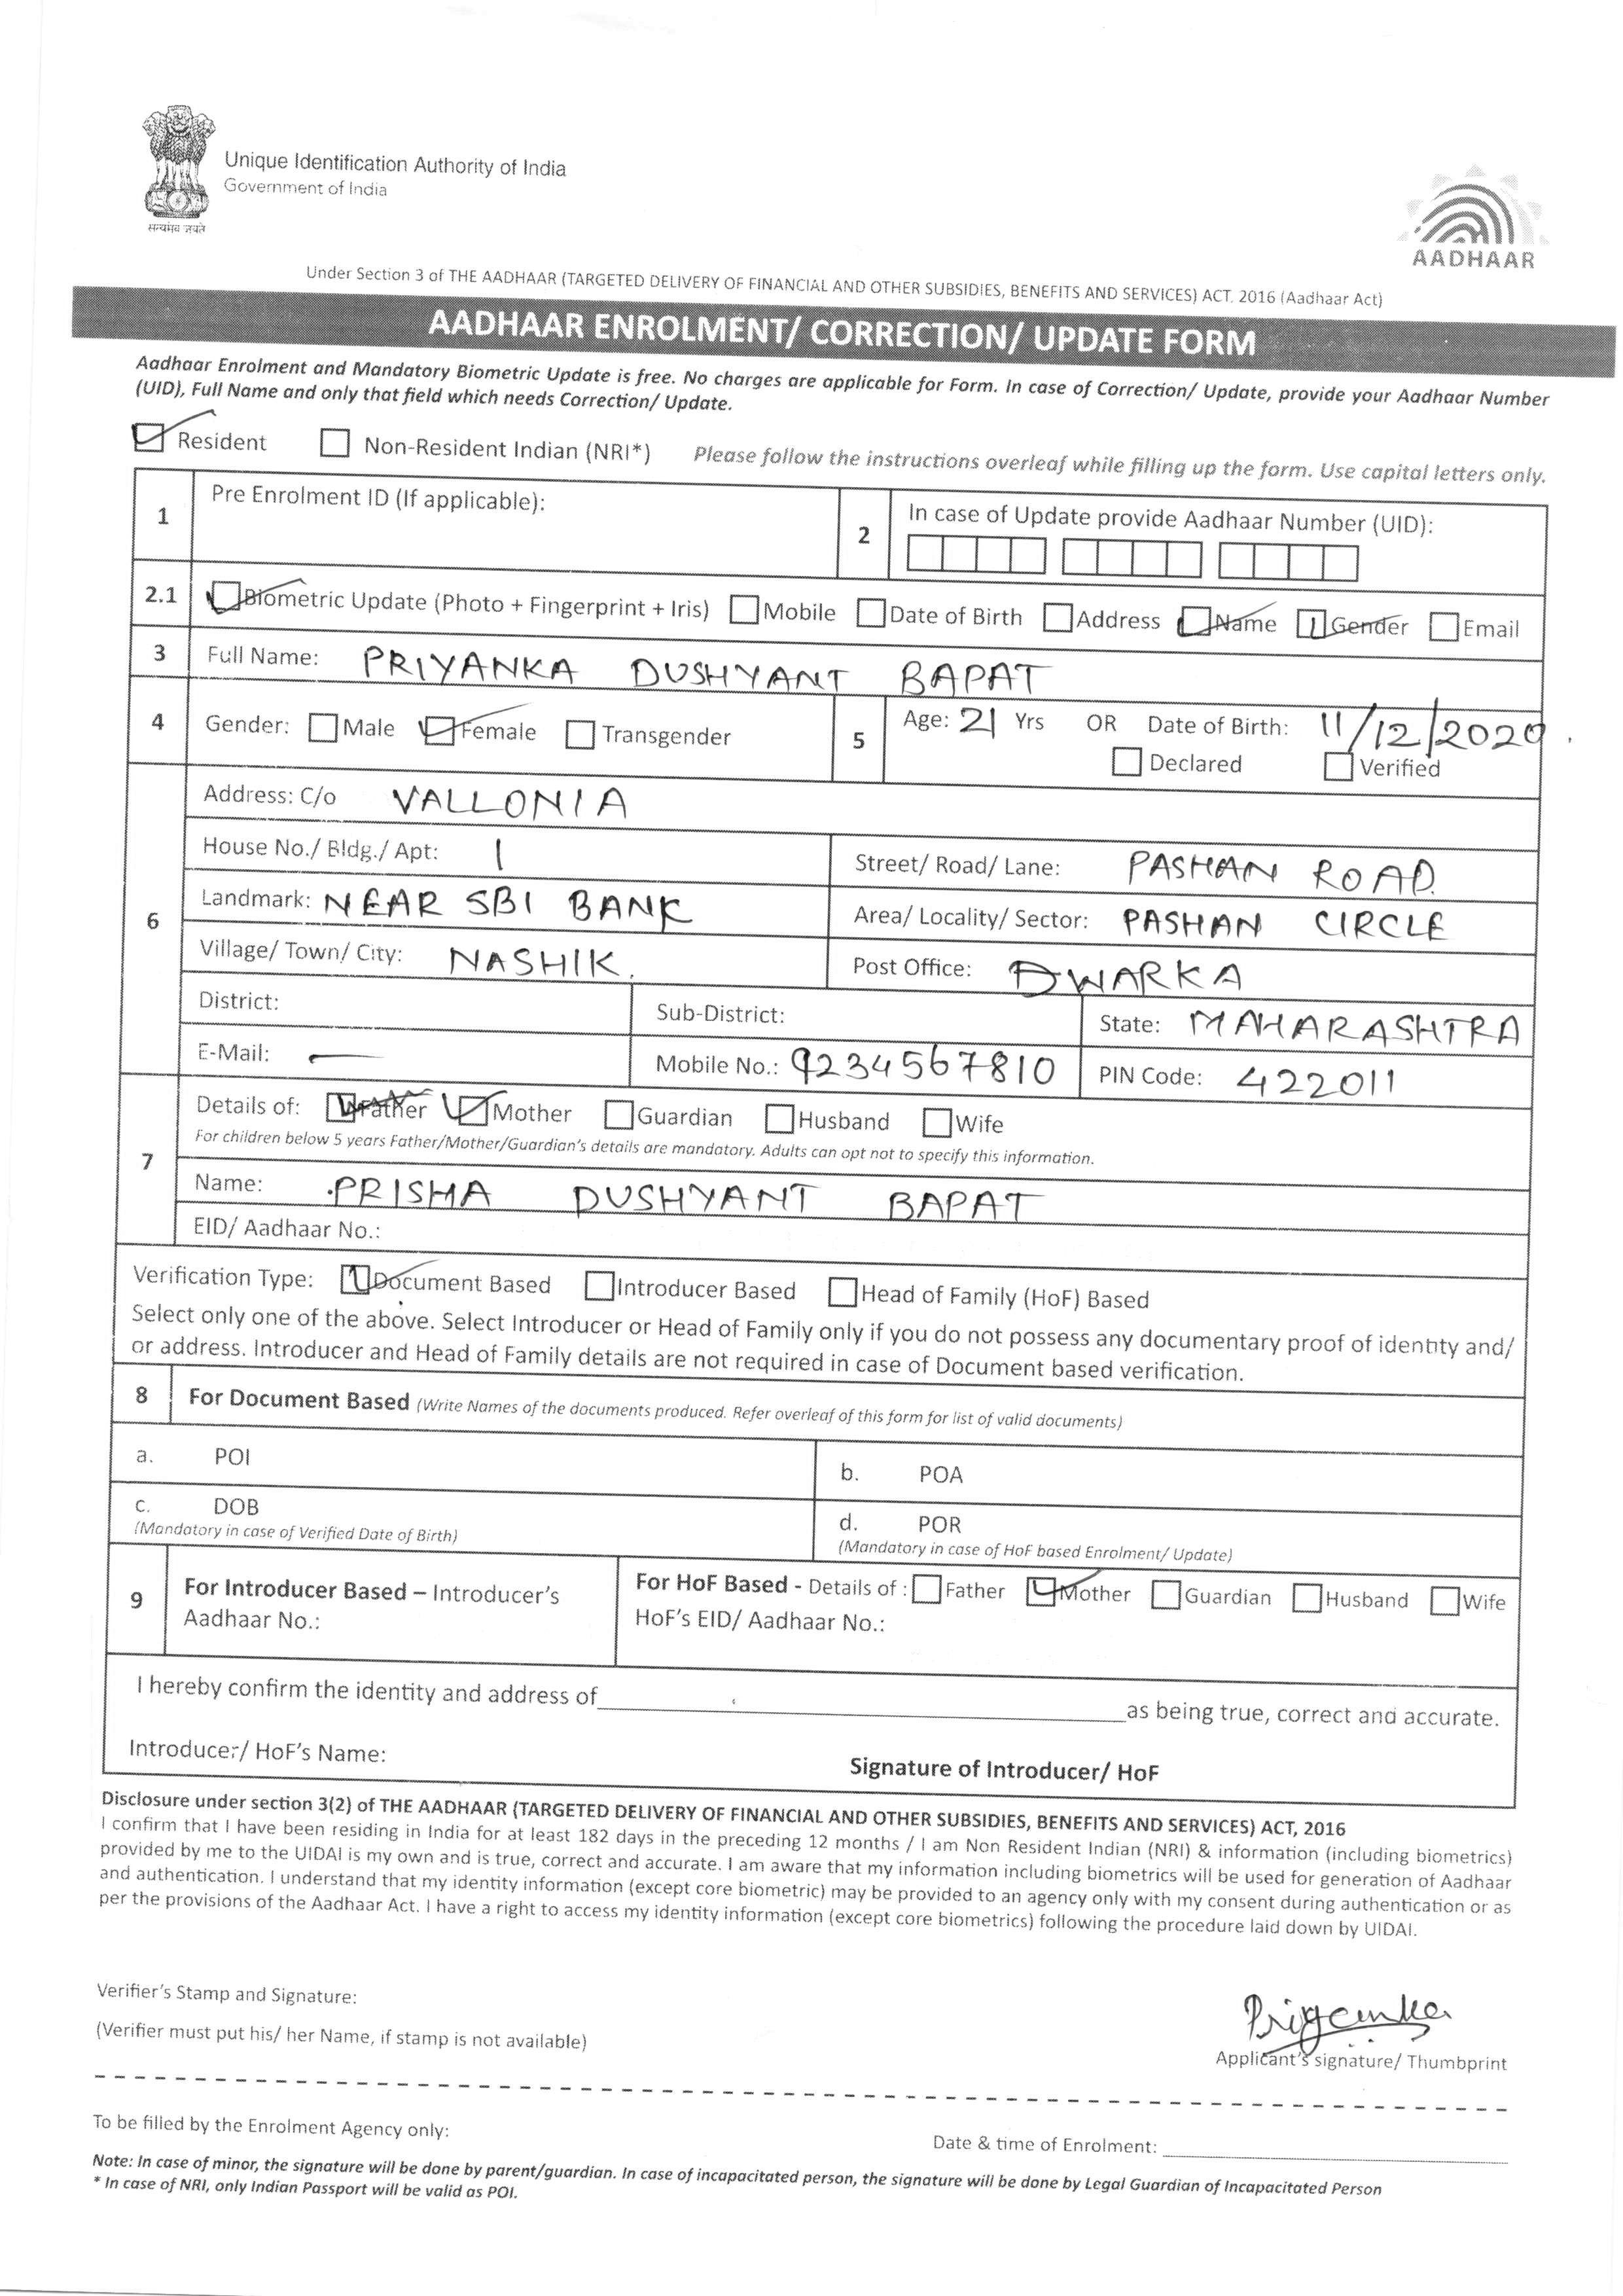 सत्यमेव जयते
Unique Identification Authority of India
Government of India
AADHAAR
Under Section 3 of THE AADHAAR (TARGETED DELIVERY OF FINANCIAL AND OTHER SUBSIDIES, BENEFITS AND SERVICES) ACT, 2016 (Aadhaar Act)
AADHAAR ENROLMENT/ CORRECTION/ UPDATE FORM
Aadhaar Enrolment and Mandatory Biometric Update is free. No charges are applicable for Form. In case of Correction/ Update, provide your Aadhaar Number
(UID), Full Name and only that field which needs Correction/ Update.
Resident Non-Resident Indian (NRI*) Please follow the instructions overleaf while filling up the form. Use capital letters only.
1 Pre Enrolment ID (If applicable):
2 In case of Update provide Aadhaar Number (UID):
2.1 Biometric Update (Photo + Fingerprint + Iris) Mobile Date of Birth Address Name Gender Email
3 Full Name: PRIYANKA DUSHYANT BAPAT
4 Gender: Male Female Transgender
5 Age: 21 Yrs OR Date of Birth: 11/12/2020
Declared Verified
6 Address: C/o VALLONIA
House No./ Bldg./ Apt: 1 Street/ Road/ Lane: PASHAN ROAD.
Landmark: NEAR SBI BANK Area/ Locality/ Sector: PASHAN CIRCLE
Village/ Town/ City: NASHIK. Post Office: DWARKA
District: Sub-District: State: MAHARASHTRA
E-Mail: — Mobile No.: 9234567810 PIN Code: 422011
7 Details of: Father Mother Guardian Husband Wife
For children below 5 years Father/Mother/Guardian's details are mandatory. Adults can opt not to specify this information.
Name: PRISHA DUSHYANT BAPAT
EID/ Aadhaar No.:
Verification Type: Document Based Introducer Based Head of Family (HoF) Based
Select only one of the above. Select Introducer or Head of Family only if you do not possess any documentary proof of identity and/
or address. Introducer and Head of Family details are not required in case of Document based verification.
8 For Document Based (Write Names of the documents produced. Refer overleaf of this form for list of valid documents)
a. POI
b. POA
c. DOB
(Mandatory in case of Verified Date of Birth)
d. POR
(Mandatory in case of HoF based Enrolment/ Update)
9 For Introducer Based – Introducer's
Aadhaar No.:
For HoF Based - Details of : Father Mother Guardian Husband Wife
HoF's EID/ Aadhaar No.:
I hereby confirm the identity and address of as being true, correct and accurate.
Introducer/ HoF's Name:
Signature of Introducer/ HoF
Disclosure under section 3(2) of THE AADHAAR (TARGETED DELIVERY OF FINANCIAL AND OTHER SUBSIDIES, BENEFITS AND SERVICES) ACT, 2016
I confirm that I have been residing in India for at least 182 days in the preceding 12 months / I am Non Resident Indian (NRI) & information (including biometrics)
provided by me to the UIDAI is my own and is true, correct and accurate. I am aware that my information including biometrics will be used for generation of Aadhaar
and authentication. I understand that my identity information (except core biometric) may be provided to an agency only with my consent during authentication or as
per the provisions of the Aadhaar Act. I have a right to access my identity information (except core biometrics) following the procedure laid down by UIDAI.
Verifier's Stamp and Signature:
(Verifier must put his/ her Name, if stamp is not available)
Priyanka
Applicant's signature/ Thumbprint
To be filled by the Enrolment Agency only:
Date & time of Enrolment:
Note: In case of minor, the signature will be done by parent/guardian. In case of incapacitated person, the signature will be done by Legal Guardian of Incapacitated Person
* In case of NRI, only Indian Passport will be valid as POI.